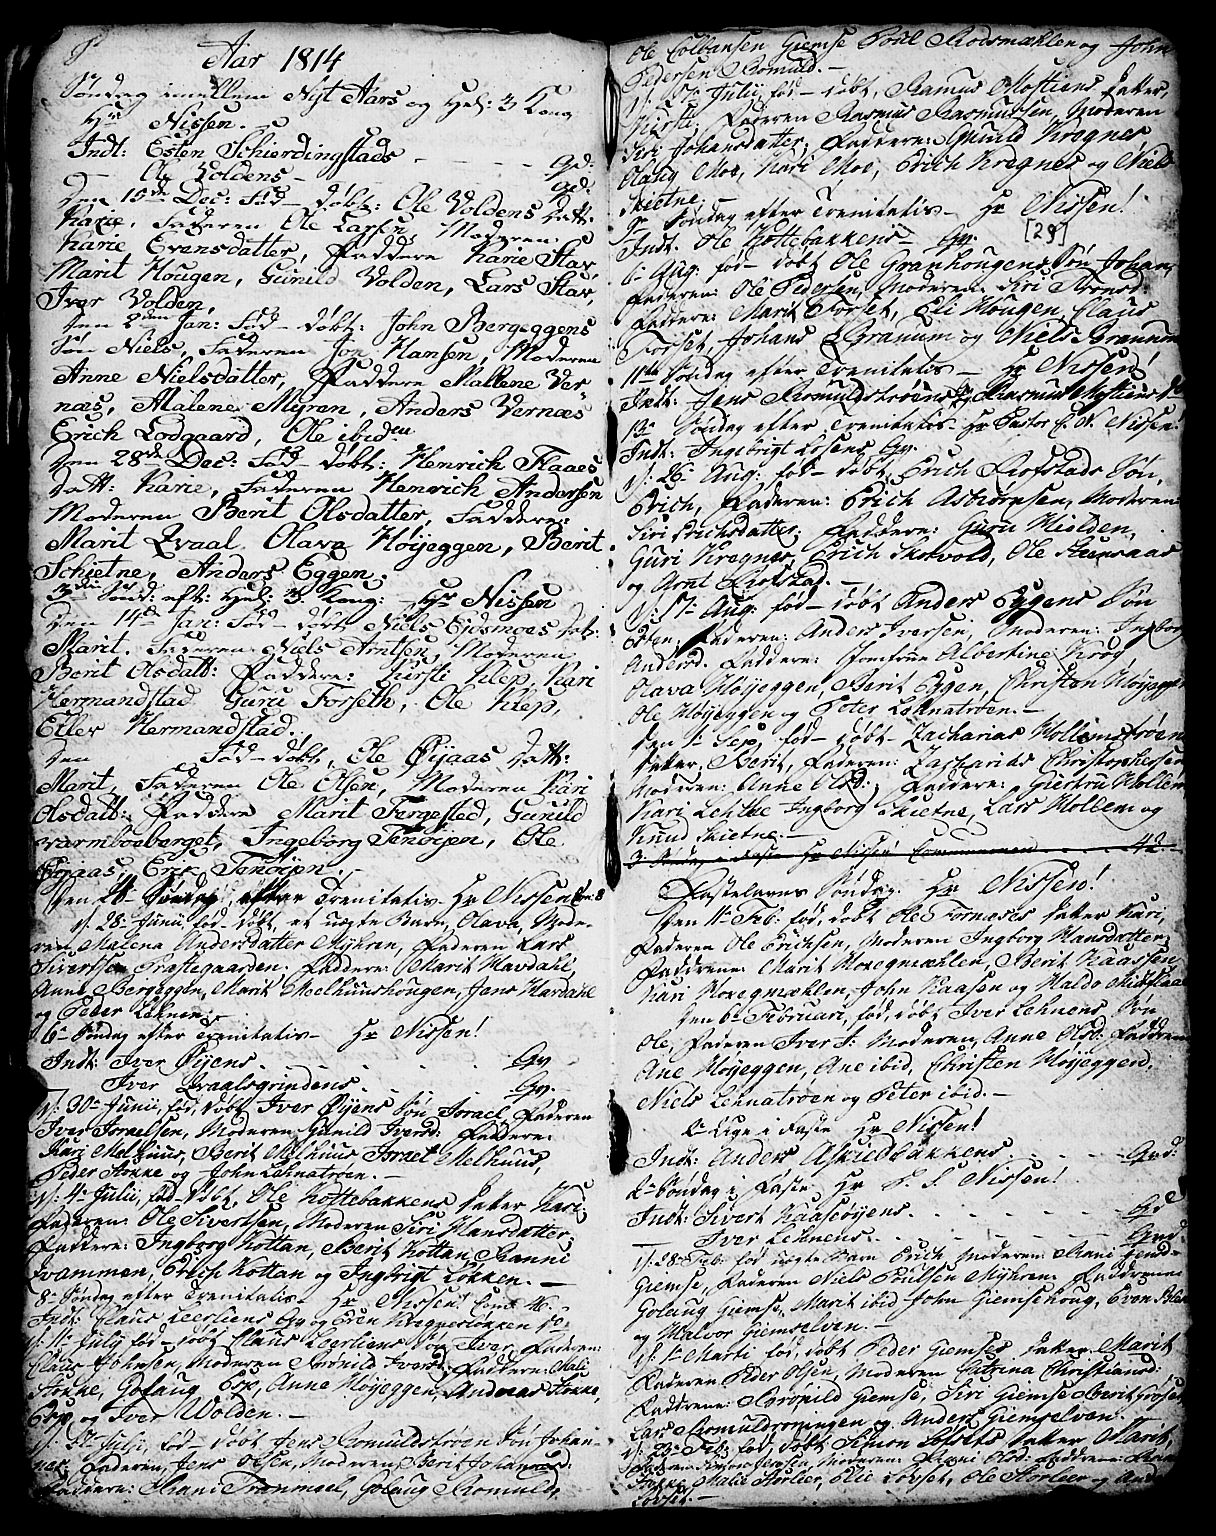 Aar 1814
Søndag imellem Nyt Aars og Hel: 3 Kong
Hr Nissen.
Indl: Esten Schierdingstads - - - - Qd:
— Ole Voldens - Qd:
Den 15de Dec: Fød - døbt: Ole Voldens Datt:
Karie, Faderen Ole Larsen, Moderen:
Karie Evensdatter, Faddere Karie Stav,
Marit Hougen, Gunild Volden, Lars Stav,
Iver Volden,
Den 2den Jan: Fød - døbt: John Bergeggens
Søn Niels, Faderen Jon Hansen, Moderen
Anne Nielsdatter, Faddere Mallene Ver
næs, Malene Myren, Anders Vernæs
Erich Lodgaard, Ole ibiden
Den 28de Dec: Fød - døbt: Henrich Flaaes
Datt: Karie, Faderen Henrich Andersen
Moderen Berit Olsdatter, Faddere:
Marit Qvaal, Olava Høyeggen, Berit
Schietne, Anders Eggen.
3die Sønd: eft: Hel: 3 Kong: Hr Nissen
Den 14de Jan: Fød - døbt Niels Eidsmoes Dat:
Marit. Faderen: Niels Arntsen, Moderen
Berit Olsdatt: Faddere: Kirsti Klep, Kari
Hermandstad Guru Forseth, Ole Klep,
Eller Hermandstad.
Den Fød - døbt, Ole Øyaas Datt:
Marit, Faderen Ole Olsen, Moderen Kari
Olsdatt: Faddere Marit Fergested, Gunild
varmboeberget, Ingeborg Tenøien, Ole
Øyaas, Eric Tenøien.
Den Søndag efter Trenitatis Hr Nissen
d: 28 Junii, fød, døbt, et uægte Barn, Olava, Mode-
ren, Malena Andersdatter Myhren, Faderen Lars
Sivertsen Præstegaarden. Faddere: Marit Havdahl,
Anne Bergeggen, Marit Melhuushougen, Jens Havdahl
og Peder Lehnen.
6te Søndag efter Trenitatis - Hr Nissen!
Indl: Iver Øyens - Qv
Iver Qvaalsgrindens - Qv.
d: 30te Junii, fød, døbt Iver Øyens Søn Israel, Faderen
Iver Israelsen, Moderen Gunild Iversd: Faddere:
Kari Melhuus, Berit Melhuus Israel Melhuus,
Peder Stokke og John Lehnatrøen. -
d: 4de Julii, fød - døbt, Ole Kottebakkens Datter Kari,
Faderen: Ole Sivertsen, Moderen Siri Hansdatter,
Faddere: Ingborg Kottan, Berit Kottan, Ranni
Qvammen, Erich Kottan og Ingbrigt Løkken. -
8de Søndag efter Trenitatis. Hr Nissen!
Indl: Claus Leerliens Qv og Even Kregnesløkken
d: July fød - døbt Claus Leerliens Søn Iver Faderen:
Claus Johnsen, Moderen Iversd: Faddere: Mali
Stokke, Golaug Øye, Anne Høyeggen, Andreas Stokke,
og Iver Wolden. -
d: Julii, fød - døbt Jens Romuldstrøen Søn Johan-
nes, Faderen, Jens Olsen, Moderen: Berit Johannesd:
Faddere: Rani Golaug Romuld,
Ole Colbansen Giemse Poul Rodsmælen og John
Pedersen Romuld. -
d: Julii fød - døbt, Rasmus Mostiens Datter,
Kirsti. Faderen Rasmus Rasmussen, Moderen
Siri Johansdatter, Faddere: Gunild Kregnes
Olaug Moe, Kari Moe, Erich Kregnes og Niels
Skietne. -
9de Søndag efter Trenitatis - Hr Nissen!
[29]
Indl. Ole Kottebakkens - Qv.
6te Aug: fød - døbt Ole Granhougens Søn Johan,
Faderen: Ole Pedersen, Moderen: Siri
Faddere: Marit Forset, Eli Hougen, Claus
Forset, Johans Granum og Niels Granum
11te Søndag efter Trenitatis - Hr Nissen!
Indl: Jens Romuldstrøens og Rasmus Mostiens
13de Søndag efter Trenitatis - Hr Pastor Nissen:
Indl: Ingebrigt Losens Qv.
d: 26 Aug: fød - døbt Erich Rofstads Søn,
Erich, Faderen: Erich Asbiørnsen, Moderen:
Siri Erichsdatter, Faddere: Guru Hiolden,
Guri Kregnes, Erich Skovold, Ole
og Arnt Rofstad. -
d: 17de Aug: fød - døbt Anders Eggens Søn
Esten, Faderen: Anders Iversen, Moderen: Ingborg
Andersd. Faddere: Jomfrue Albertine Krog
Olava Høyeggen, Berit Eggen, Christen Høyeggen
Ole Høyeggen og Peter Lehnatrøen. -
Den 1te Sep, fød - døbt - Zacharias Hollemstrøens
Datter, Berit, Faderen: Zacharias Christophersen
Moderen: Anne Olsd: Faddere: Giertru Hollem,
Kari Lehtbe Ingborg Skietne, Lars Hollem og
Knud Skietne. -
Hr Nissen Communion - - 42
Fastelavns Søndag. Hr Nissen!
Den 1te Feb: fød, døbt Ole Fornæses Datter Kari,
Faderen Ole Erichsen, Moderen Ingborg Hansdatter,
Fadderne: Marit Horegmælen, Berit Kaassen,
Kari Horegmælen, John Kaasen og Haldo
Den 6te Februari, fød, døbt Iver Lehnens Søn
Ole, Faderen Iver I: Moderen, Anne Olsd: Fadderne
Ane Høyeggen, Ane ibid, Christen Høyeggen,
Niels Lehnatrøen og Peter ibid. -
Uge i Faste Hr Nissen!
Indl: Anders - Qvd:
2den Søndag i Faste Hr Nissen!
Indl: Sivert Kaasøyens. - Qd
Iver Lehnens. - Qvd.
d: 28 Feb: fød uægte Barn Erich Moderen: Rani
Giemse, Faderen Niels Poulsen Myhren: Fadderne
Golaug Giemse, Marit ibid John Giemsehoug, Even
og Halvor Giemselven. -
d: 1te Marti fød, døbt Peder Giemses Datter Marit
Faderen Peder Olsen, Moderen Catrina Christiansd:
Fadderne: Giemse, Siri Giemse Berit
Lars Romuldsøyningen og Anders Giemselven
d: 23de Feb: fød, døbt Simon Lofsets Datter Marit,
Moderen: Olsd:
Malie Storlier, Elie Løvset, Ole Storlier og And
Løvset. -